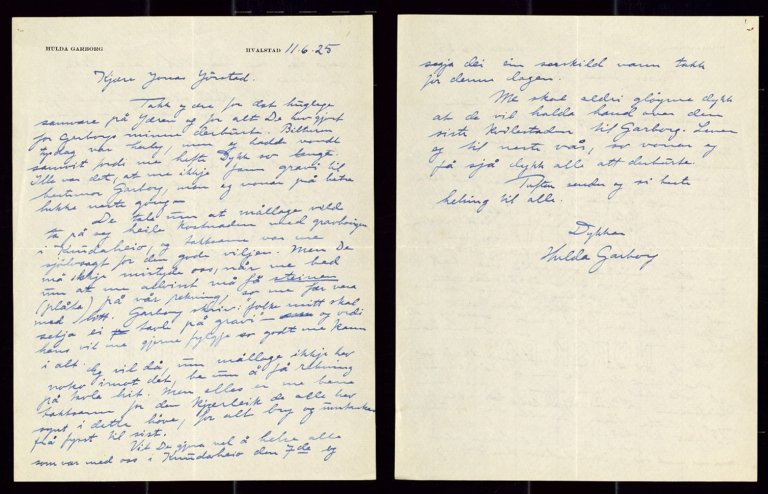 HULDA GARBORG
HVALSTAD 11.6.25
Kjære Jonas Jørstad.
Takk ydere for det hugelege
samvære på Jæren og for alt De hev gjort
for Garborgs minne derburte. Bilturen
tysdag var herleg, men eg hadde vondt
samvit fordi me hefte Dykk so lenge.
Ille var det, at me ikkje fann gravi til
bestemor Garborg, men eg vonar på betre
lukke neste gong —
De tala um at mållaga vilde
ta på seg heile kostnaden med gravhaugen
i Knudaheio, og takksame var me
sjølvsagt for den gode viljen. Men De
må ikkje mistyde oss, når me bad
um at me allvist må få steinen
(plåta) på vår rekning, so me fær vera
med litt. Garborg skriv: "folke mitt skal
setja ei tavle på gravi" — og vedi
hans vil me gjerne fylgje so godt me kann
i alt.
Eg vil då, um mållaga ikkje hev
noko imot det, be um å få rekning
på tavla hit. Men elles er me berre
takksame for den kjærleik de alle hev
synt i dette høve, for alt bry og umtanke
frå fyrst til sist.
Vil De gjera vel å helsa alle
som var med oss i Knudaheio den 7de og
segja dei ein særskild varm takk
for denne dagen.
Me skal aldri gløyme dykk
at de vil halda hand over den
siste kvilestaden til Garborg. Lever
eg til neste vår, so vonar eg
få sjå dykk alle att derburte.
Tuften sender og si beste
helsing til alle.
Dykkar
Hulda Garborg